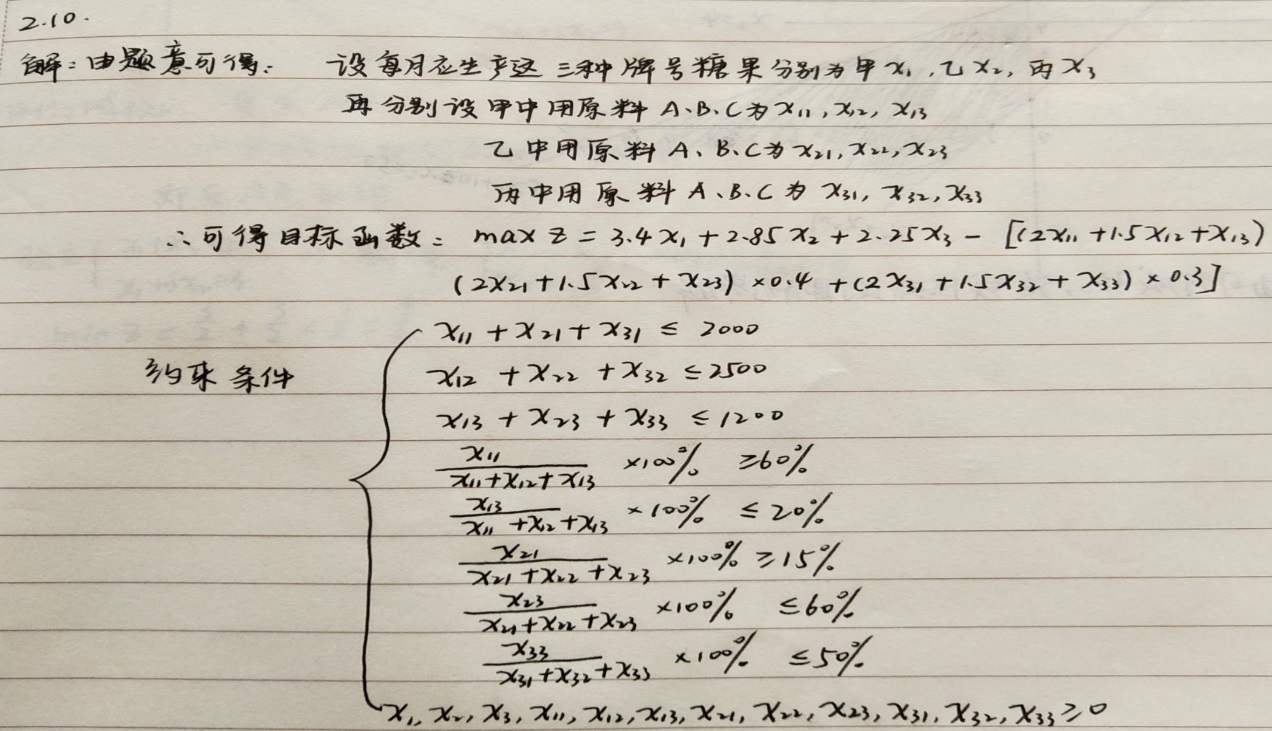 2.10.
解：由题意可得： 设每月应生产这三种牌号糖果分别为甲x₁,乙x₂,丙x₃
再分别设甲中用原料A、B、C为x₁₁,x₁₂,x₁₃
乙中用原料A、B、C为x₂₁,x₂₂,x₂₃
丙中用原料A、B、C为x₃₁,x₃₂,x₃₃
∴可得目标函数： max z = 3.4x₁+2.85x₂+2.25x₃-[(2x₁₁+1.5x₁₂+x₁₃)
(2x₂₁+1.5x₂₂+x₂₃)×0.4+(2x₃₁+1.5x₃₂+x₃₃)×0.3]
x₁₁+x₂₁+x₃₁≤2000
约束条件 x₁₂+x₂₂+x₃₂≤2500
x₁₃+x₂₃+x₃₃≤1200
x₁₁/(x₁₁+x₁₂+x₁₃) ×100% ≥60%
x₁₃/(x₁₁+x₁₂+x₁₃) ×100% ≤20%
x₂₁/(x₂₁+x₂₂+x₂₃) ×100% ≥15%
x₂₃/(x₂₁+x₂₂+x₂₃) ×100% ≤60%
x₃₃/(x₃₁+x₃₂+x₃₃) ×100% ≤50%
x₁,x₂,x₃,x₁₁,x₁₂,x₁₃,x₂₁,x₂₂,x₂₃,x₃₁,x₃₂,x₃₃≥0